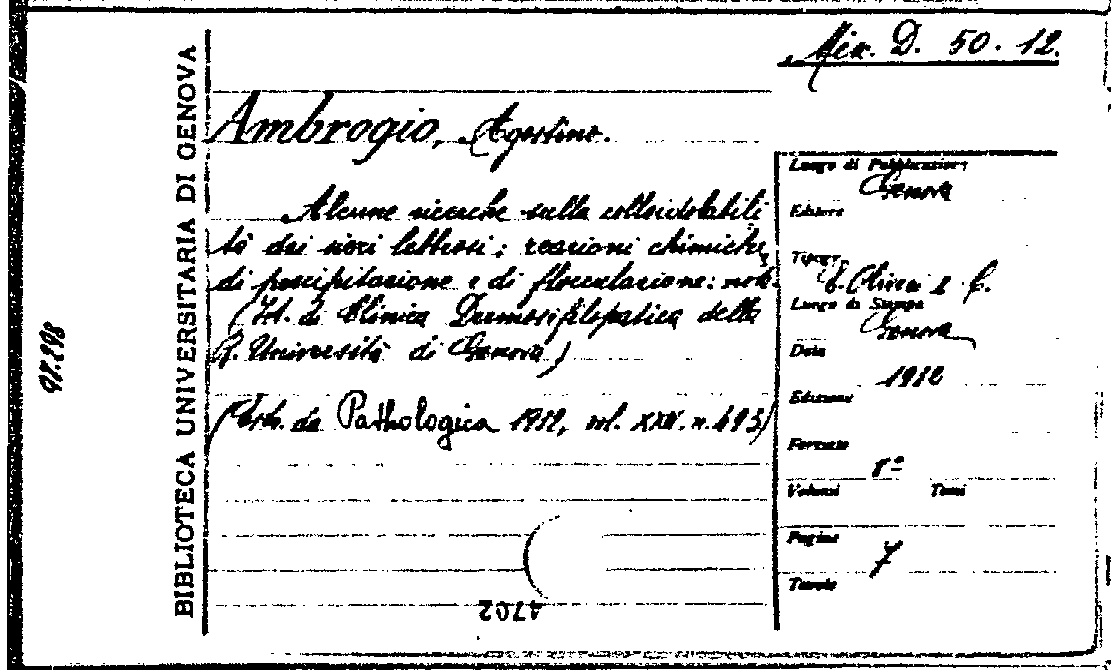 Mix. D. 50. 12.
BIBLIOTECA UNIVERSITARIA DI GENOVA
Ambrogio, Agostino.
Alcune ricerche sulla colloidolabili
tà dei sieri luetici; reazioni chimiche,
di precipitazione e di flocculazione: nota.
(Ist. di Clinica Dermosifilopatica della
R. Università di Genova)
(Estr. da Pathologica 1932, vol. XXIV. n. 493)
Luogo di Pubblicazione
Genova
Editore
Tipogr.
Olivieri & C.
Luogo di Stampa
Genova
Data
1932
Edizione
Formato
8º
Volumi Tomi
Pagine
7
Tavole
4702